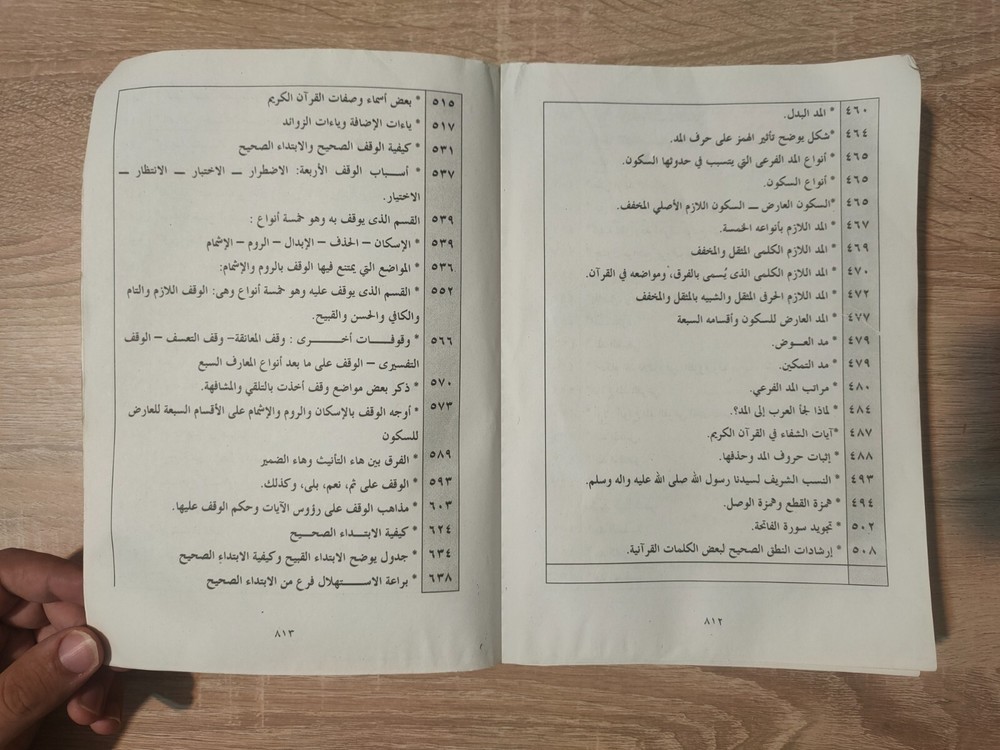 ٤٦٠ * المد البدل.
٤٦٤ *شكل يوضح تأثير الهمز على حرف المد.
٤٦٥ * أنواع المد الفرعى التي يتسبب في حدوثها السكون.
٤٦٥ * أنواع السكون.
٤٦٥ *السكون العارض ــ السكون اللازم الأصلي المخفف.
٤٦٧ * المد اللازم بأنواعه الخمسة.
٤٦٩ * المد اللازم الكلمى المثقل والمخفف
٤٧٠ * المد اللازم الكلمى الذى يُسمى بالفرق، ومواضعه في القرآن.
٤٧٢ * المد اللازم الحرفى المثقل والشبيه بالمثقل والمخفف
٤٧٧ * المد العارض للسكون وأقسامه السبعة
٤٧٩ * مد العـــوض.
٤٧٩ * مد التمكين.
٤٨٠ * مراتب المد الفرعي.
٤٨٤ * لماذا لجأ العرب إلى المد؟.
٤٨٧ *آيات الشفاء في القرآن الكريم.
٤٨٨ * إثبات حروف المد وحذفها.
٤٩٣ * النسب الشريف لسيدنا رسول الله صلى الله عليه واله وسلم.
٤٩٤ * همزة القطع وهمزة الوصل.
٥٠٢ * تجويد سورة الفاتحة.
٥٠٨ * إرشادات النطق الصحيح لبعض الكلمات القرآنية.
٨١٢
٥١٥ * بعض أسماء وصفات القرآن الكريم
٥١٧ * ياءات الإضافة وياءات الزوائد
٥٣١ * كيفية الوقف الصحيح والابتداء الصحيح
٥٣٧ * أسـباب الوقف الأربعة: الاضطرار ــ الاختبار ــ الانتظار ــ
الاختيار.
٥٣٩ القسم الذى يوقف به وهو خمسة أنواع :
٥٣٩ * الإسكان – الحذف – الإبدال – الروم – الإشمام
٥٣٦ * المواضع التي يمتنع فيها الوقف بالروم والإشمام:
٥٥٢ * القسم الذى يوقف عليه وهو خمسة أنواع وهى: الوقف اللازم والتام
والكافي والحسن والقبيح.
٥٦٦ * وقوفـــات أخـــرى : وقف المعانقة– وقف التعسف – الوقف
التفسيرى – الوقف على ما بعد أنواع المعارف السبع
٥٧٠ * ذكر بعض مواضع وقف أخذت بالتلقي والمشافهة.
٥٧٣ * أوجه الوقف بالإسكان والروم والإشمام على الأقسام السبعة للعارض
للسكون
٥٨٩ * الفرق بين هاء التأنيث وهاء الضمير
٥٩٣ * الوقف على ثم، نعم، بلى، وكذلك.
٦٠٣ * مذاهب الوقف على رؤوس الآيات وحكم الوقف عليها.
٦٢٤ * كيفية الابتــداء الصحـــيح
٦٣٤ * جدول يوضح الابتداء القبيح وكيفية الابتداء الصحيح
٦٣٨ * براعة الاســـتهلال فرع من الابتداء الصحيح
٨١٣